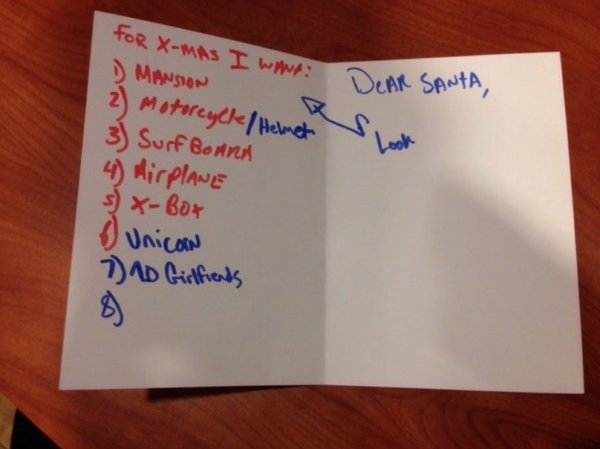 FOR X-MAS I WANT:
1) MANSION
2) Motorcycle/Helmet
3) SurfBOARD
4) AirplANE
5) X-BOX
6) UNicorN
7) 10 Girlfriends
8)
DEAR SANTA,
Look